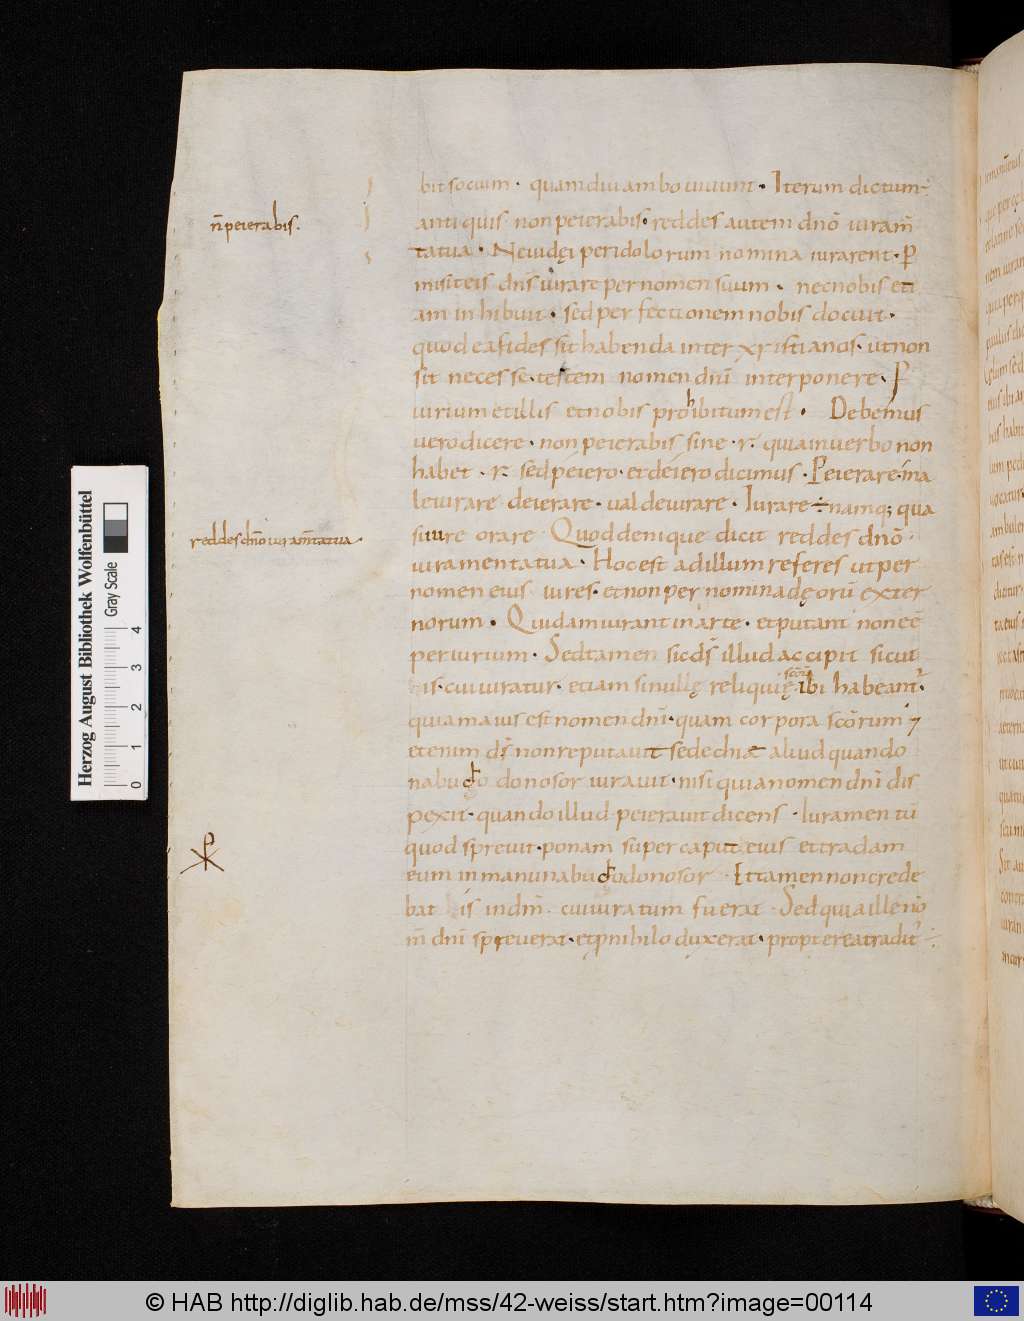 bit socium · quamdiu ambo uiuunt · Iterum dictum ÷
n̄ peierabis.
antiquis · non peierabis · reddes autem dn̄o iuram̄
tatua · Neiudęi peridolorum nomina iurarent · P
misit eis dn̄s iurare per nomen suum · nec nobis eti
am inhibuit · sed perfectionem nobis docuit ·
quod ea fides sit habenda inter xristianos · ut non
sit necesse · testem nomen dn̄i interponere · P
iurium et illis et nobis prohibitum est · Debemus
uero dicere · non peierabis sine · r · quia in uerbo non
habet · r · sed péiero · et déiero dicimus · Peierare · ma
le iurare deierare · ual deiurare · Iurare ÷ namq; qua
reddes dn̄o iuram̄ta tua ·
si iure orare Quod denique dicit reddes dn̄o ·
iuramenta tua · Hoc est ad illum referes ut per
nomen eius iures · et non per nomina dęorū exter
norum · Quidam iurant in arte · et putant non eē
periurium · Sed tamen sic ds̄ illud accipit sicut
is · cui iuratur · etiam si nullę reliquię scōrū ibi habeant ·
quia maius est nomen dn̄i · quam corpora scōrum ;
etenim ds̄ non reputauit sedechiæ aliud quando
nabuchodonosor iurauit · nisi quia nomen dn̄i dis
pexit · quando illud peierauit dicens · Iuramentū
quod spreuit · ponam super caput eius et tradam
eum in manu nabuchodonosor · Et tamen non crede
bat is in dn̄m · cui iuratum fuerat · Sed quia ille no
m̄ dn̄i spreuerat · et p nihilo duxerat · propterea tradit᷑ ÷
Herzog August Bibliothek Wolfenbüttel
Gray Scale
0 1 2 3 4
© HAB http://diglib.hab.de/mss/42-weiss/start.htm?image=00114